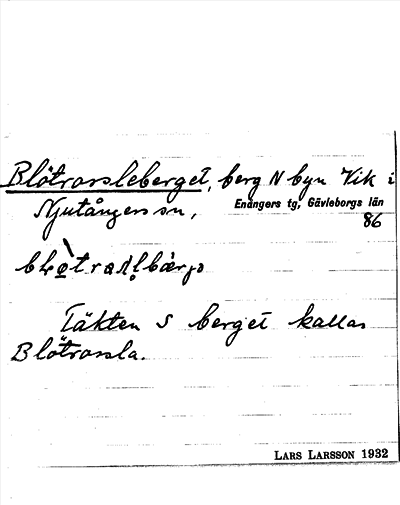 Blötrarsleberget, berg N byn Vik i
Njutångers sn, Enångers tg, Gävleborgs län
86
Täkten S berget kallas
Blötrarsla.
LARS LARSSON 1932